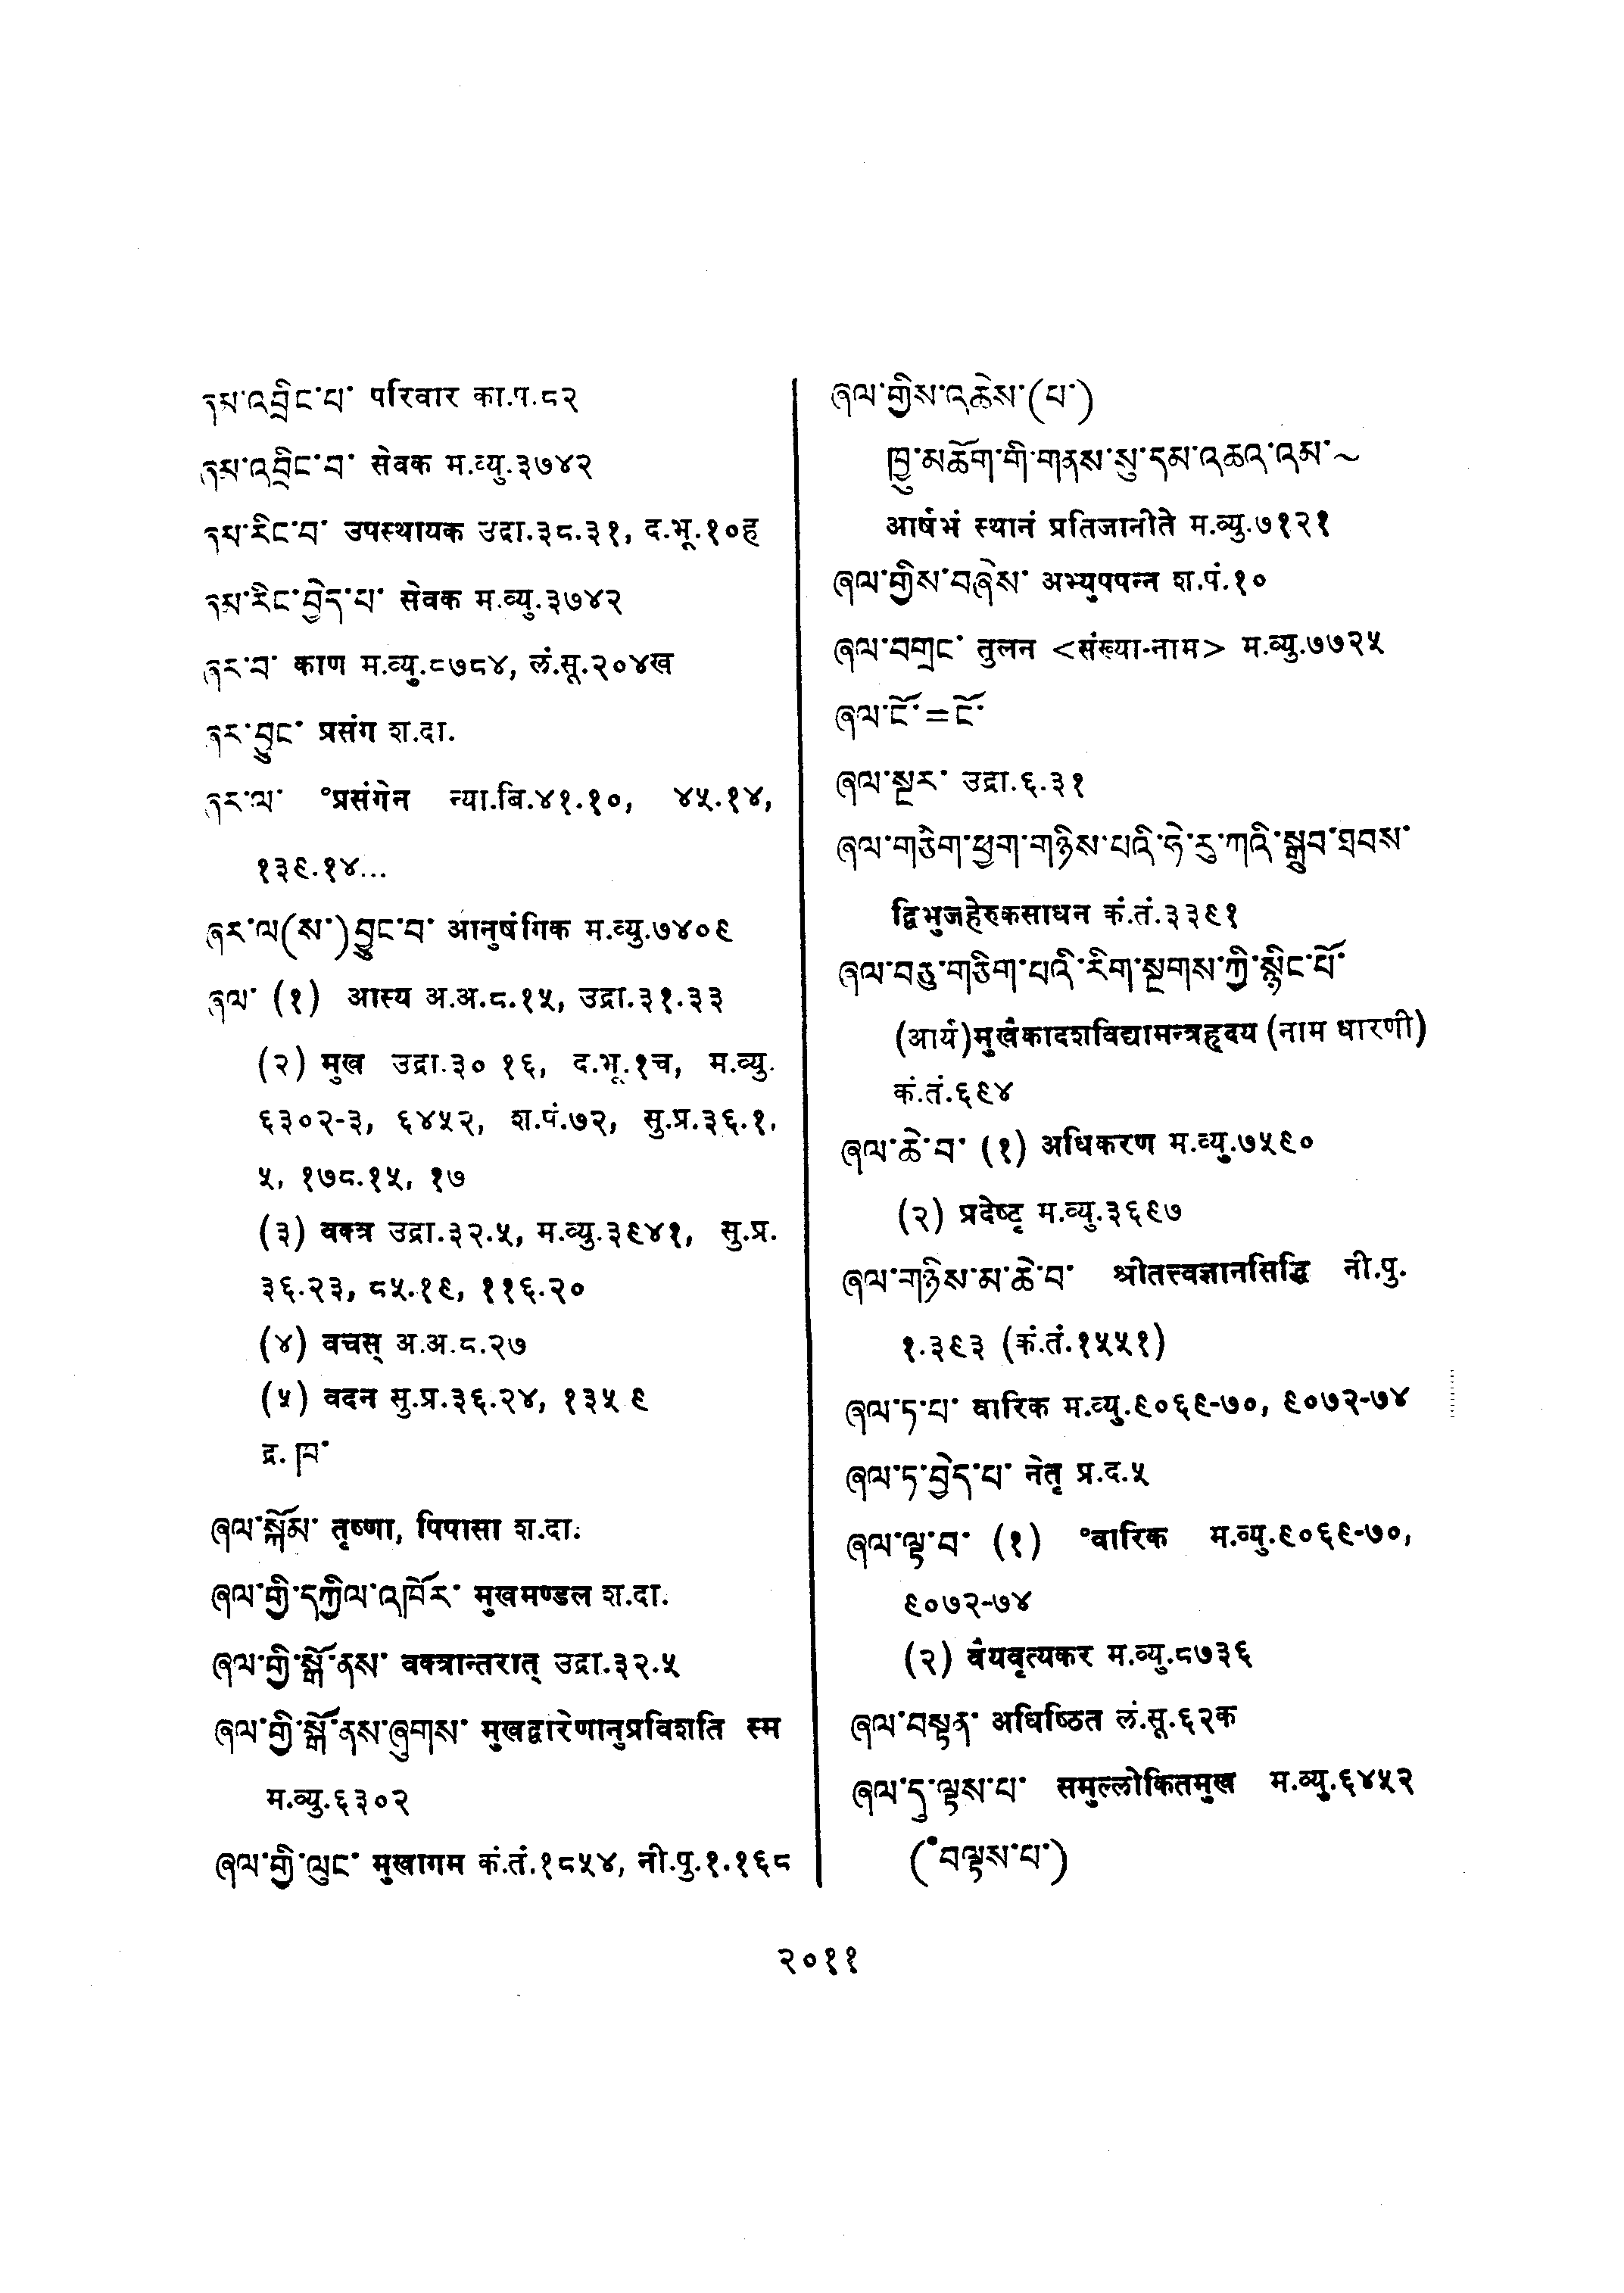 ཞམ་འབྲིང་པ་ परिवार का.प.८२
ཞམ་འབྲིང་བ་ सेवक म.व्यु.३७४२
ཞམ་རིང་བ་ उपस्थायक उद्रा.३८.३१, द.भू.१०ह
ཞམ་རིང་བྱེད་པ་ सेवक म.व्यु.३७४२
ཞར་བ་ काण म.व्यु.८७८४, लं.सू.२०४ख
ཞར་བྱུང་ प्रसंग श.दा.
ཞར་ལ་ °प्रसंगेन न्या.बि.४१.१०, ४५.१४,
१३९.१४...
ཞར་ལ(ས་)བྱུང་བ་ आनुषंगिक म.व्यु.७४०९
ཞལ་ (१) आस्य अ.अ.८.१५, उद्रा.३१.३३
(२) मुख उद्रा.३० १६, द.भू.१च, म.व्यु.
६३०२-३, ६४५२, श.पं.७२, सु.प्र.३६.१,
५, १७८.१५, १७
(३) वक्त्र उद्रा.३२.५, म.व्यु.३९४१, सु.प्र.
३६.२३, ८५.१९, ११६.२०
(४) वचस् अ.अ.८.२७
(५) वदन सु.प्र.३६.२४, १३५ ९
द्र. ཁ་
ཞལ་སྐོམ་ तृष्णा, पिपासा श.दा.
ཞལ་གྱི་དཀྱིལ་འཁོར་ मुखमण्डल श.दा.
ཞལ་གྱི་སྒོ་ནས་ वक्त्रान्तरात् उद्रा.३२.५
ཞལ་གྱི་སྒོ་ནས་ཞུགས་ मुखद्वारेणानुप्रविशति स्म
म.व्यु.६३०२
ཞལ་གྱི་ལུང་ मुखागम कं.तं.१८५४, नी.पु.१.१६८
ཞལ་གྱིས་འཆེས་(པ་)
ཁྱུ་མཆོག་གི་གནས་སུ་དམ་འཆའ་འམ་~
आर्षभं स्थानं प्रतिजानीते म.व्यु.७१२१
ཞལ་གྱིས་བཞེས་ अभ्युपपन्न श.पं.१०
ཞལ་བགྲང་ तुलन <संख्या-नाम> म.व्यु.७७२५
ཞལ་ངོ་=ངོ་
ཞལ་སྔར་ उद्रा.६.३१
ཞལ་གཅིག་ཕྱག་གཉིས་པའི་ཧེ་རུ་ཀའི་སྒྲུབ་ཐབས་
द्विभुजहेरुकसाधन कं.तं.३३९१
ཞལ་བཅུ་གཅིག་པའི་རིག་སྔགས་ཀྱི་སྙིང་པོ་
(आर्य)मुखैकादशविद्यामन्त्रहृदय (नाम धारणी)
कं.तं.६९४
ཞལ་ཆེ་བ་ (१) अधिकरण म.व्यु.७५९०
(२) प्रदेष्टृ म.व्यु.३६९७
ཞལ་གཉིས་མ་ཆེ་བ་ श्रीतत्त्वज्ञानसिद्धि नी.पु.
१.३९३ (कं.तं.१५५१)
ཞལ་ཏ་པ་ वारिक म.व्यु.९०६९-७०, ९०७२-७४
ཞལ་ཏ་བྱེད་པ་ नेतृ प्र.द.५
ཞལ་ལྟ་བ་ (१) °वारिक म.व्यु.९०६९-७०,
९०७२-७४
(२) वैयवृत्यकर म.व्यु.८७३६
ཞལ་བསྟན་ अधिष्ठित लं.सू.६२क
ཞལ་དུ་ལྟས་པ་ समुल्लोकितमुख म.व्यु.६४५२
(°བལྟས་པ་)
२०११